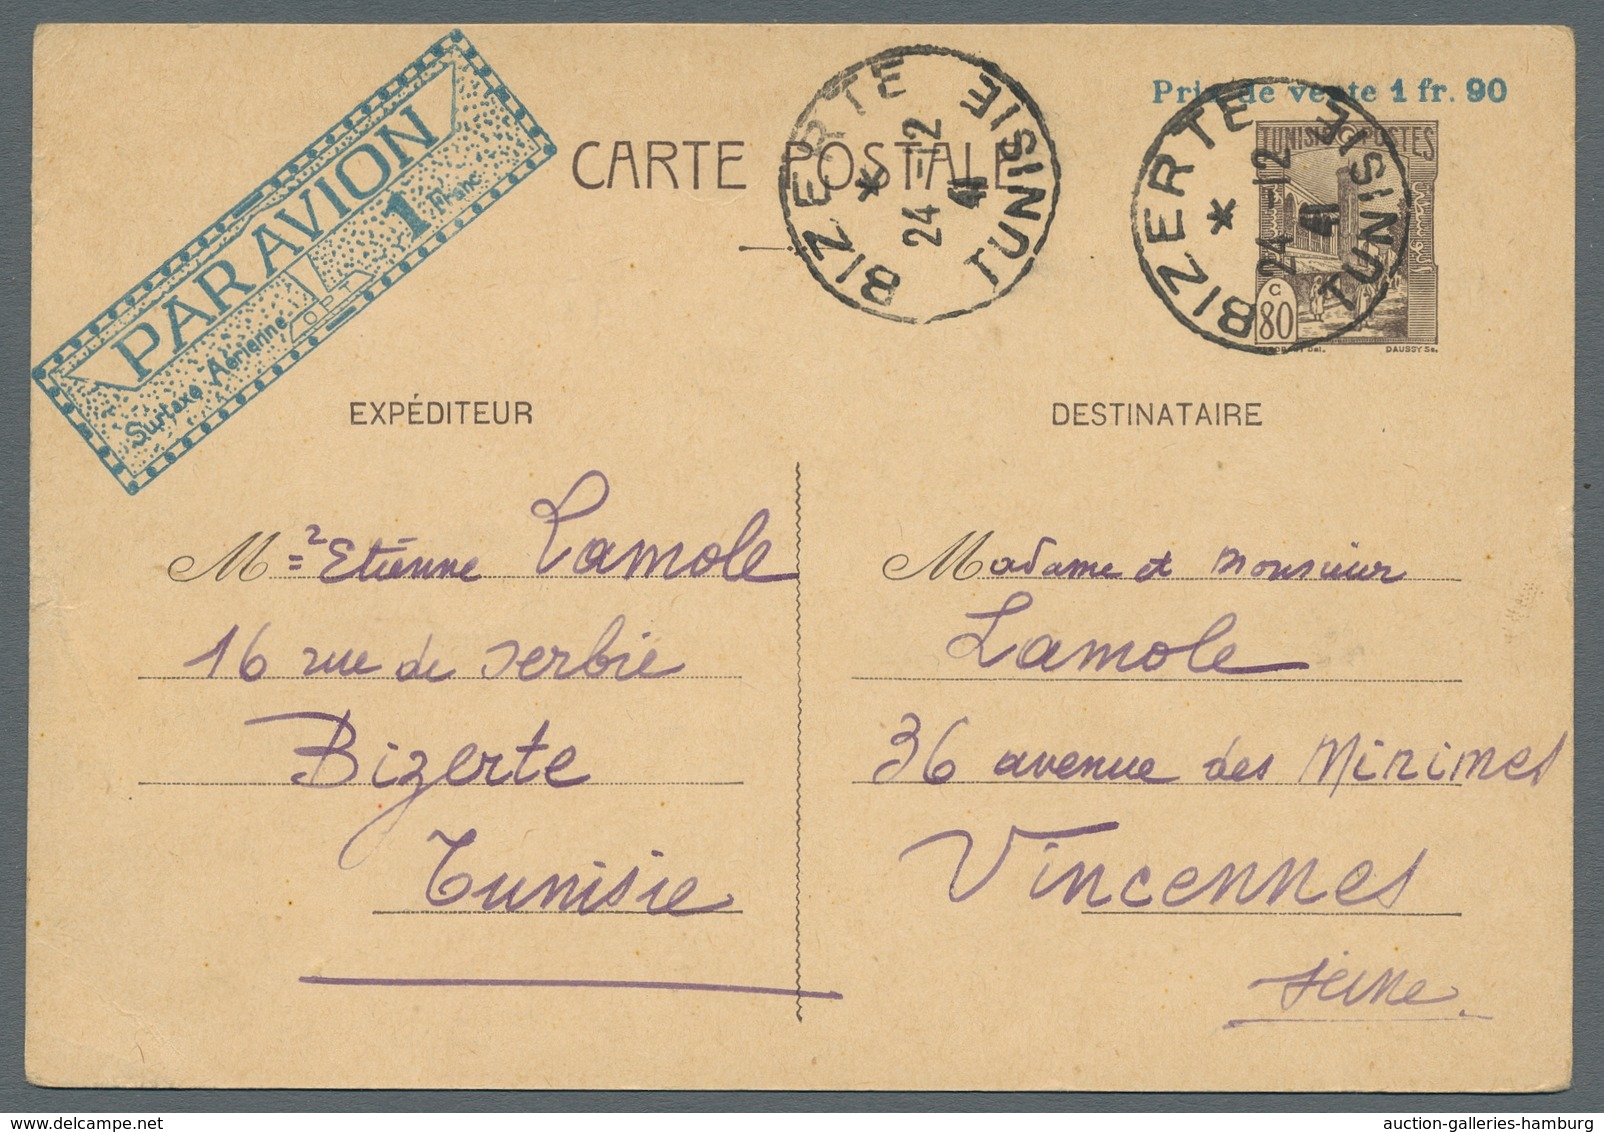 PAR AVION
Surtaxe Aérienne
1 Franc
OPT
CARTE POSTALE
BIZERTE TUNISIE
24 -12
41
BIZERTE TUNISIE
24 -12
41
Prix de vente 1 fr. 90
TUNISIE POSTES
c
80
DAUSSY Sc.
EXPÉDITEUR
Mr Etienne Lamole
16 rue de Serbie
Bizerte
Tunisie
DESTINATAIRE
Madame et Monsieur
Lamole
36 avenue des Minimes
Vincennes
Seine
auction-galleries-hamburg